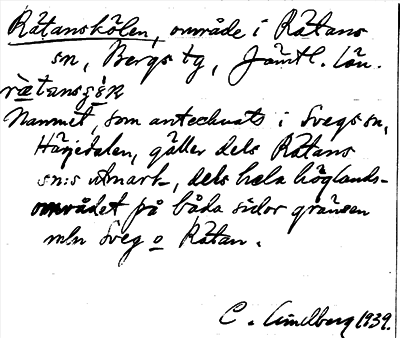 Rätanskölen, område i Rätans
sn, Bergs tg, Jämtl. län.
rætansʒö̀n
Namnet, som antecknats i Svegs sn,
Härjedalen, gäller dels Rätans
sn:s utmark, dels hela höglands-
området på båda sidor gränsen
mln Sveg o Rätan.
C. Lindberg 1939.